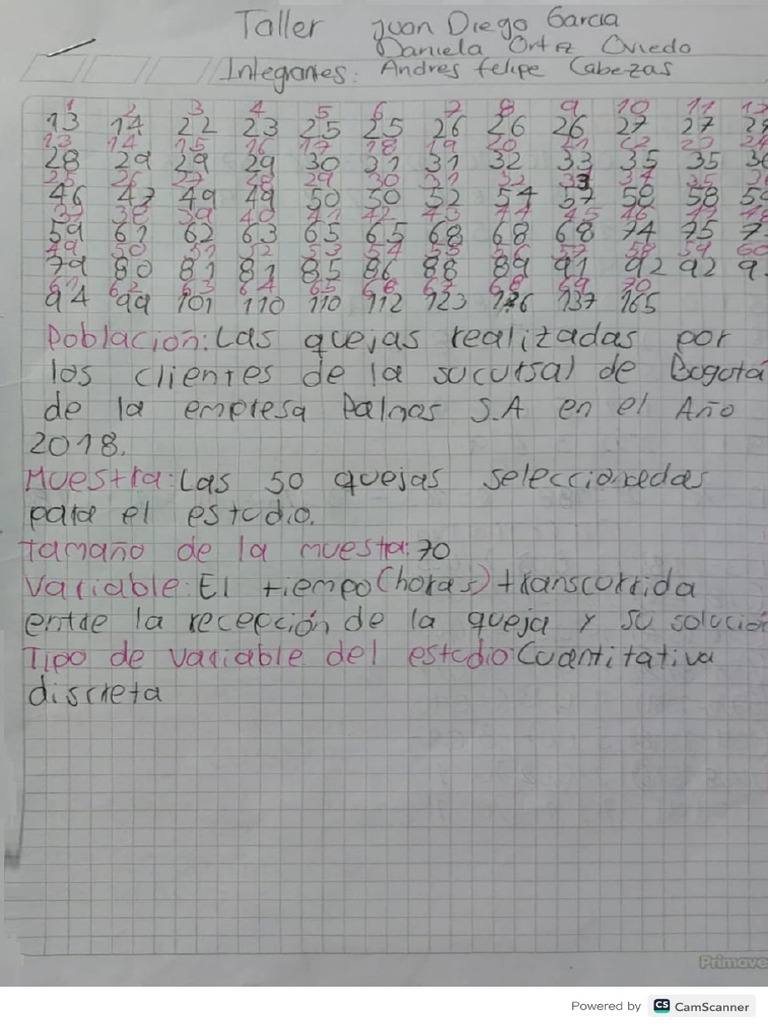 Taller Juan Diego Garcia
Daniela Ortiz Oviedo
Integrantes: Andres felipe Cabezas
1 2 3 4 5 6 7 8 9 10 11
13 14 22 23 25 25 26 26 26 27 27
13 14 15 16 17 18 19 20 21 22 23 24
28 29 29 29 30 31 31 32 33 35 35
25 26 27 28 29 30 31 32 33 34 35
46 47 49 49 50 50 52 54 57 58 58
37 38 39 40 41 42 43 44 45 46 47 48
59 61 62 63 65 65 68 68 68 74 75
49 50 51 52 53 54 55 56 57 58 59 60
79 80 81 81 85 86 88 89 91 92 92
61 62 63 64 65 66 67 68 69 70
94 99 101 110 110 112 123 137 165
Población: Las quejas realizadas por
los clientes de la sucursal de Bogotá
de la empresa Palmas S.A en el Año
2018.
Muestra: Las 50 quejas seleccionadas
para el estudio.
tamaño de la muestra: 70
Variable: El tiempo (horas) transcurrida
entre la recepción de la queja y su solución
Tipo de variable del estudio: Cuantitativa
discreta
Primave
Powered by CS CamScanner